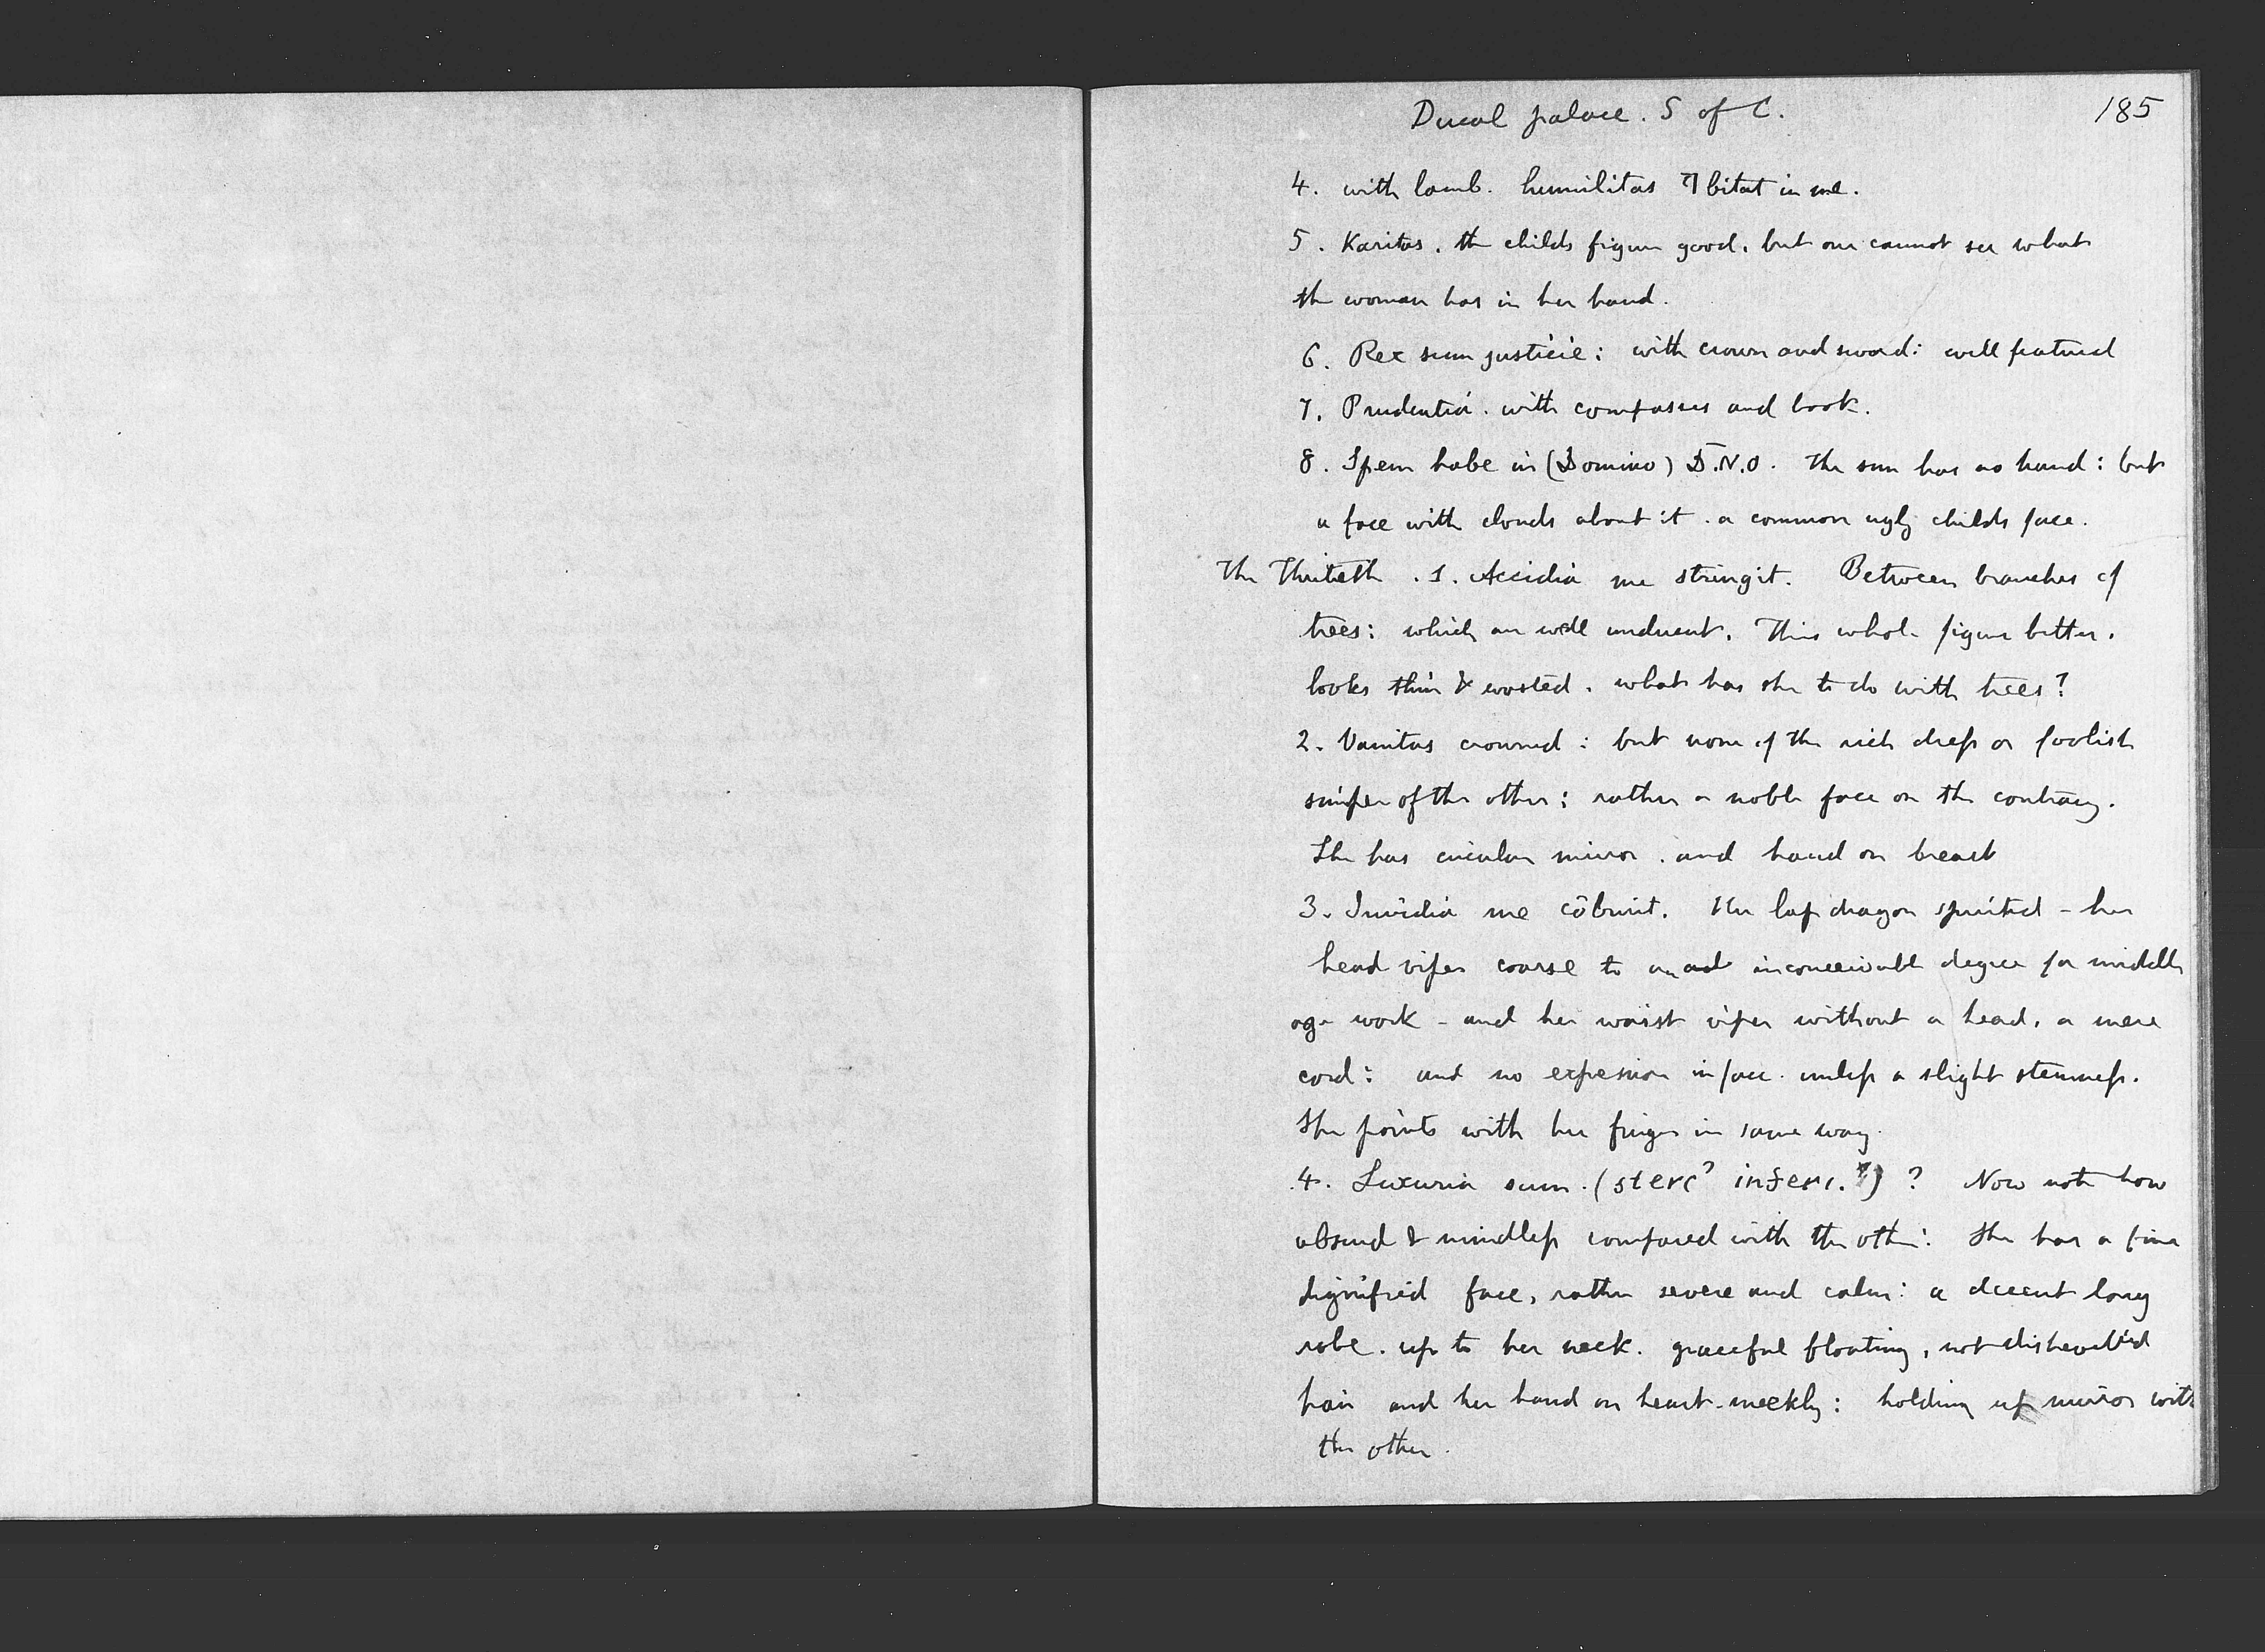 Ducal palace. S of C.
185
4. with lamb. humilitas bitat in me.
5. Karitas. the childs figure good. but one cannot see what
the woman has in her hand.
6. Rex sum justicie: with crown and sword: well featured
7. Prudentia. with compasses and book.
8. Spem habe in (Domino) D.N.O. The sun has no hand: but
a face with clouds about it. a common ugly childs face.
The Thirtieth. 1. Accidia me stringit. Between branches of
trees: which are well undercut. This whole figure better.
looks thin & wasted. what has she to do with trees?
2. Vanitas crowned: but none of the rich dress or foolish
simper of the other: rather a noble face on the contrary.
She has circular mirror. and hand on breast
3. Invidia me cōburit. Her lap dragon spirited - her
head viper coarse to an inconceivable degree for middle
age work - and her waist viper without a head. a mere
cord: and no expression in face. unless a slight sternness.
She points with her finger in same way.
4. Luxuria sum. (sterc' inferi.) ? Now note how
absurd & mindless compared with the other: She has a fine
dignified face, rather severe and calm: a decent long
robe. up to her neck. graceful floating, not dishevelled
hair and her hand on heart meekly: holding up mirror with
the other.